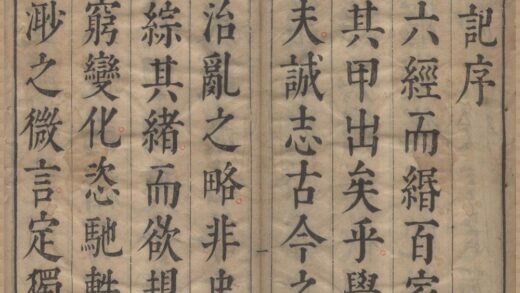 記序
六經而緡百家
其甲出矣乎學
夫誠志古今之
治亂之略非史
綜其緒而欲規
窮變化恣馳
渺之微言定獨